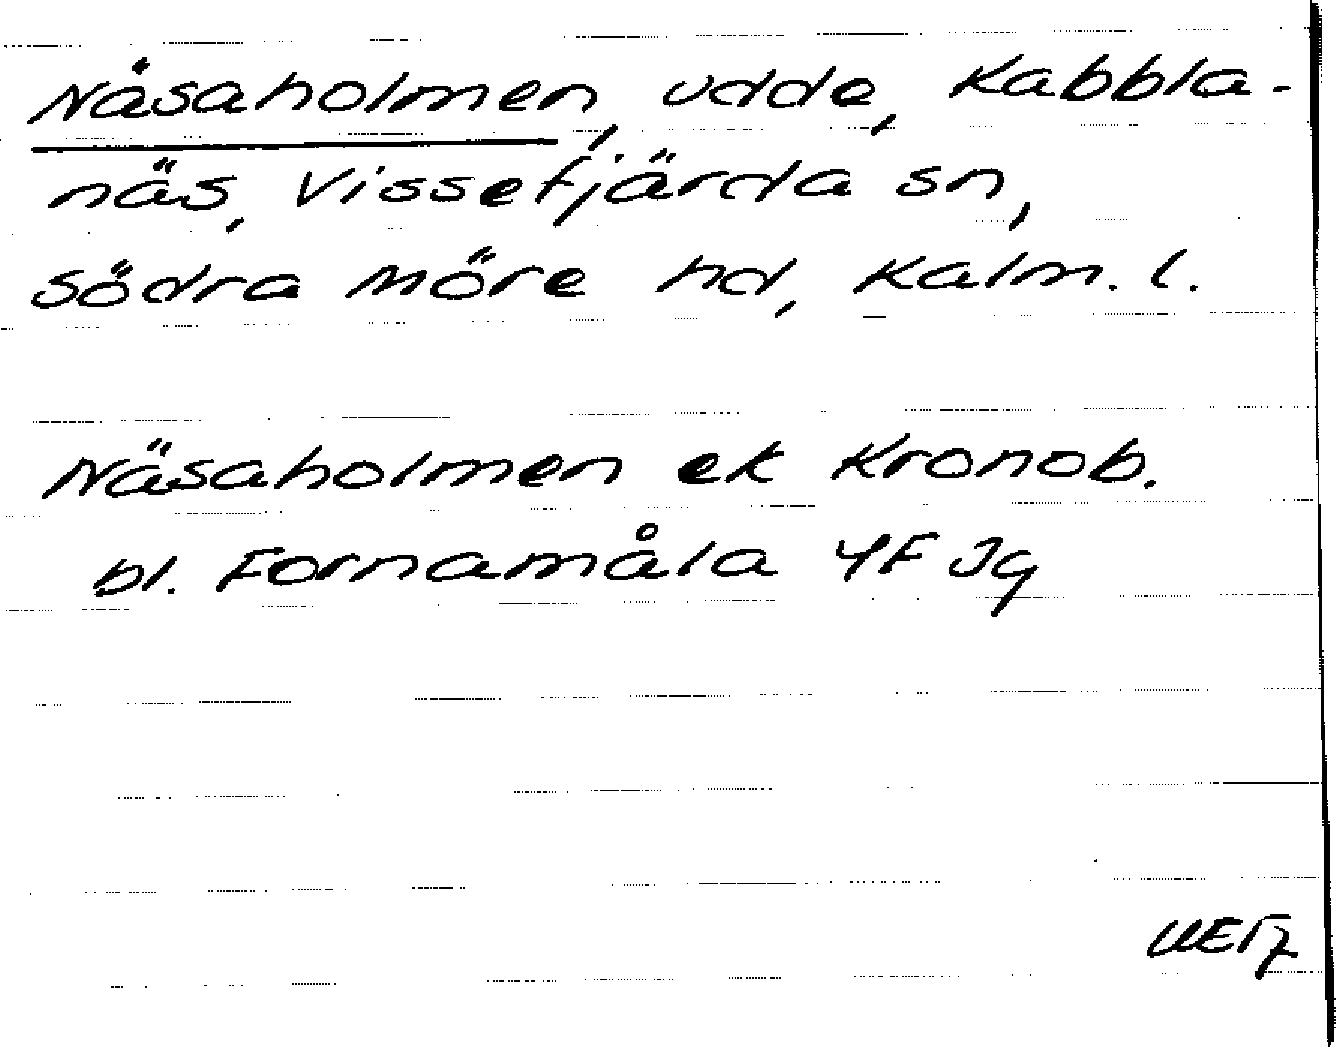 Näsaholmen, udde, Kabbla-
näs, Vissefjärda sn,
södra Möre hd, Kalm. l.
Näsaholmen ek Kronob.
bl. Fornamåla 4F Jg